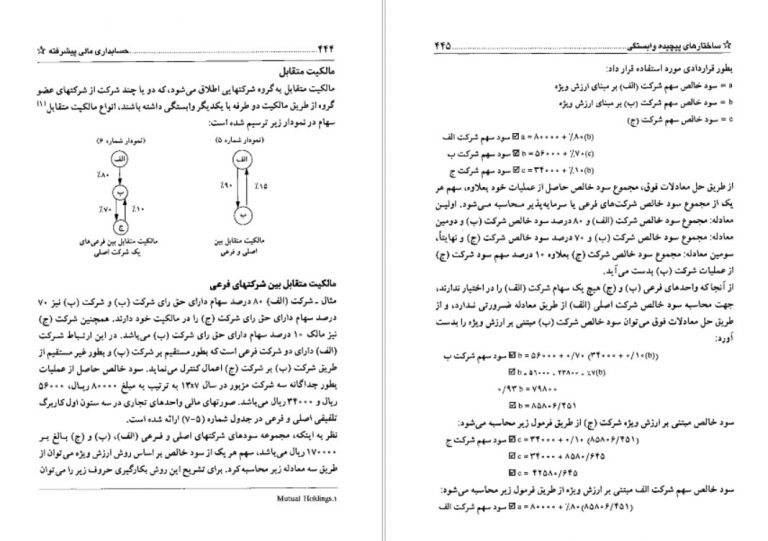 ۴۴۴ ........ حسابداری مالی پیشرفته ☆
مالکیت متقابل
مالکیت متقابل به گروه شرکتهایی اطلاق می‌شود، که دو یا چند شرکت از شرکتهای عضو
گروه از طریق مالکیت دو طرفه با یکدیگر وابستگی داشته باشند، انواع مالکیت متقابل(۱)
سهام در نمودار زیر ترسیم شده است:
(نمودار شماره ۵) (نمودار شماره ۶)
الف الف
٪۹۰ ٪۱۵ ٪۸۰
ب ب
٪۷۰ ٪۱۰
ج
مالکیت متقابل بین مالکیت متقابل بین فرعی‌های
اصلی و فرعی یک شرکت اصلی
مالکیت متقابل بین شرکتهای فرعی
مثال ـ شرکت (الف) ۸۰ درصد سهام دارای حق رای شرکت (ب) و شرکت (ب) نیز ۷۰
درصد سهام دارای حق رای شرکت (ج) را در مالکیت خود دارند. همچنین شرکت (ج)
نیز مالک ۱۰ درصد سهام دارای حق رای شرکت (ب) می‌باشد. در این ارتباط شرکت
(الف) دارای دو شرکت فرعی است که بطور مستقیم بر شرکت (ب) و بطور غیر مستقیم از
طریق شرکت (ب) بر شرکت (ج) اعمال کنترل می‌نماید. سود خالص حاصل از عملیات
بطور جداگانه سه شرکت مزبور در سال ۱۳x۷ به ترتیب به مبلغ ۸۰۰۰۰ ریال، ۵۶۰۰۰
ریال و ۳۴۰۰۰ ریال می‌باشد. صورتهای مالی واحدهای تجاری در سه ستون اول کاربرگ
تلفیقی اصلی و فرعی در جدول شماره (۵-۷) ارائه شده است.
نظر به اینکه، مجموعه سودهای شرکتهای اصلی و فرعی (الف)، (ب) و (ج) بالغ بر
۱۷۰۰۰۰ ریال می‌باشد، سهم هر یک از سود خالص بر اساس روش ارزش ویژه می‌توان از
طریق سه معادله زیر محاسبه کرد. برای تشریح این روش بکارگیری حروف زیر را می‌توان
Mutual Holdings.۱
☆ ساختارهای پیچیده وابستگی ........ ۴۴۵
بطور قراردادی مورد استفاده قرار داد:
a = سود خالص سهم شرکت (الف) بر مبنای ارزش ویژه
b = سود خالص سهم شرکت (ب) بر مبنای ارزش ویژه
c = سود خالص سهم شرکت (ج)
سود سهم شرکت الف ☑ a = ۸۰۰۰۰ + ٪۸۰(b)
سود سهم شرکت ب ☑ b = ۵۶۰۰۰ + ٪۷۰(c)
سود سهم شرکت ج ☑ c = ۳۴۰۰۰ + ٪۱۰(b)
از طریق حل معادلات فوق، مجموع سود خالص حاصل از عملیات خود بعلاوه، سهم هر
یک از مجموع سود خالص شرکت‌های فرعی یا سرمایه‌پذیر محاسبه می‌شود. اولین
معادله: مجموع سود خالص شرکت (الف) و ۸۰ درصد سود خالص شرکت (ب) و دومین
معادله: مجموع سود خالص شرکت (ب) و ۷۰ درصد سود خالص شرکت (ج) و نهایتاً،
سومین معادله: مجموع سود خالص شرکت (ج) بعلاوه ۱۰ درصد سهم سود شرکت (ج)
از عملیات شرکت (ب) بدست می‌آید.
از آنجا که واحدهای فرعی (ب) و (ج) هیچ یک سهام شرکت (الف) را در اختیار ندارند،
جهت محاسبه سود خالص شرکت اصلی (الف) از طریق معادله ضرورتی ندارد، و از
طریق حل معادلات فوق می‌توان سود خالص شرکت (ب) مبتنی بر ارزش ویژه را بدست
آورد:
سود سهم شرکت ب ☑ b = ۵۶۰۰۰ + ۰/۷۰ (۳۴۰۰۰ + ۰/۱۰(b))
☑ b =
۰/۹۳ b = ۷۹۸۰۰
☑ b = ۸۵۸۰۶/۴۵۱
سود خالص مبتنی بر ارزش ویژه شرکت (ج) از طریق فرمول زیر محاسبه می‌شود:
سود سهم شرکت ج ☑ c = ۳۴۰۰۰ + ۰/۱۰ (۸۵۸۰۶/۴۵۱)
☑ c = ۳۴۰۰۰ + ۸۵۸۰/۶۴۵
☑ c = ۴۲۵۸۰/۶۴۵
سود خالص سهم شرکت الف مبتنی بر ارزش ویژه از طریق فرمول زیر محاسبه می‌شود:
سود سهم شرکت الف ☑ a = ۸۰۰۰۰ + ٪۸۰ (۸۵۸۰۶/۴۵۱)